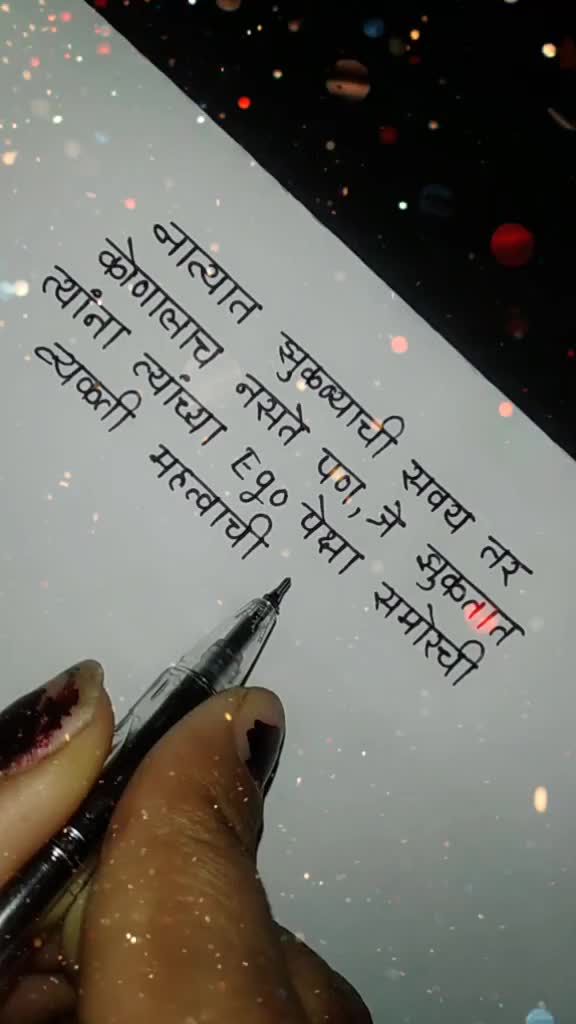 नात्यात झुकण्याची सवय तर
कोणालाच नसते पण, जे झुकतात
त्यांना त्यांच्या Ego पेक्षा समोरची
व्यक्ती महत्वाची